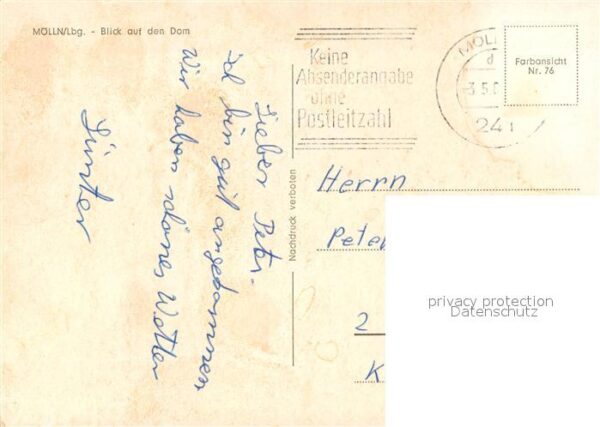 MÖLLN/Lbg. - Blick auf den Dom
Keine
Absenderangabe
ohne
Postleitzahl
MÖLL
d
-3.5.6
241
Farbansicht
Nr. 76
Lieber Peter.
ich bin gut angekommen
Wir haben schönes Wetter
Günter
Nachdruck verboten
Herrn
Peter
2
K
privacy protection
Datenschutz